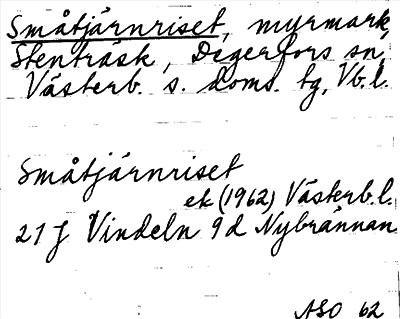 Småtjärnriset, myrmark,
Stenträsk, Degerfors sn,
Västerb. s. doms. tg, Vb.l.
Småtjärnriset
ek (1962) Västerb.l.
21 J Vindeln 9d Nybrännan
ASO 62